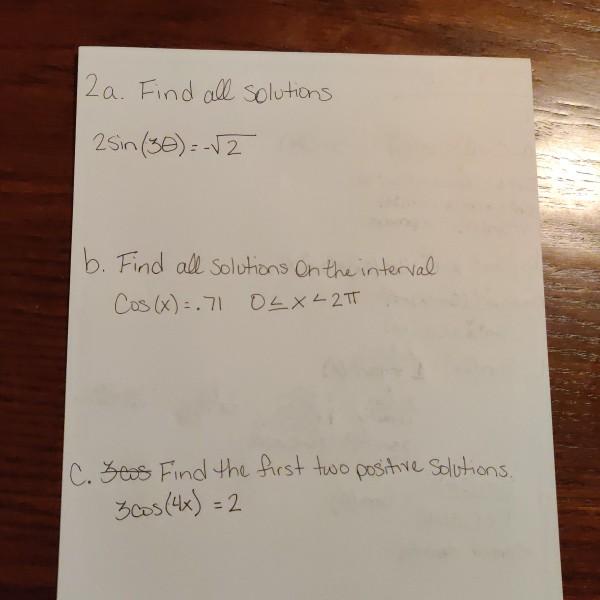 2a. Find all solutions
2sin(3θ) = -√2
b. Find all solutions on the interval
Cos(x) = .71 0 ≤ x < 2π
C. 3cos Find the first two positive solutions.
3cos(4x) = 2